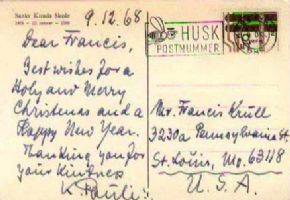 Sankt Knuds Skole
9.12.68
Dear Francis,
Best wishes for a
Holy and Merry
Christmas and a
Happy New Year.
Thanking you for
your kindness
K. Pauli
HUSK
POSTNUMMER
Mr. Francis Krüll
3230a Pennsylvania St.
St. Louis, Mo. 63118
U.S.A.